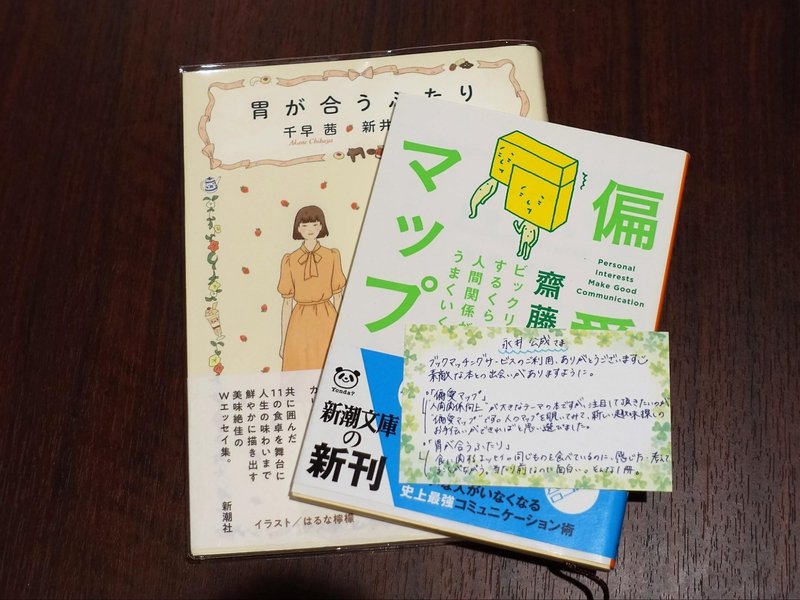 胃が合うふたり
千早 茜 新井
Akane Chihaya
共に囲んだ
11の食卓を舞台に
人生の味わいまで
鮮やかに描き出す
美味絶佳の
Wエッセイ集。
新潮社
イラスト/はるな檸檬
偏
マップ
齋藤
ビックリ
するくら
人間関係が
うまくいく
Personal
Interests
Make Good
Communication
Yonda?
新潮文庫
の
新刊
な人がいなくなる
史上最強コミュニケーション術
永井 公成さま
ブックマッチングサービスのご利用、ありがとうございます
素敵な本との出会いがありますように。
「偏愛マップ」
"人間関係向上"が大きなテーマの本ですが、注目して頂きたいのが
"偏愛マップ"です。人のマップを覗いてみて、新しい趣味探しの
お手伝いができればと思い選びました。
「胃が合うふたり」
ふたりの同じものを食べているのに、感じ方・考え
当たり前なのに面白い。そんな1冊。